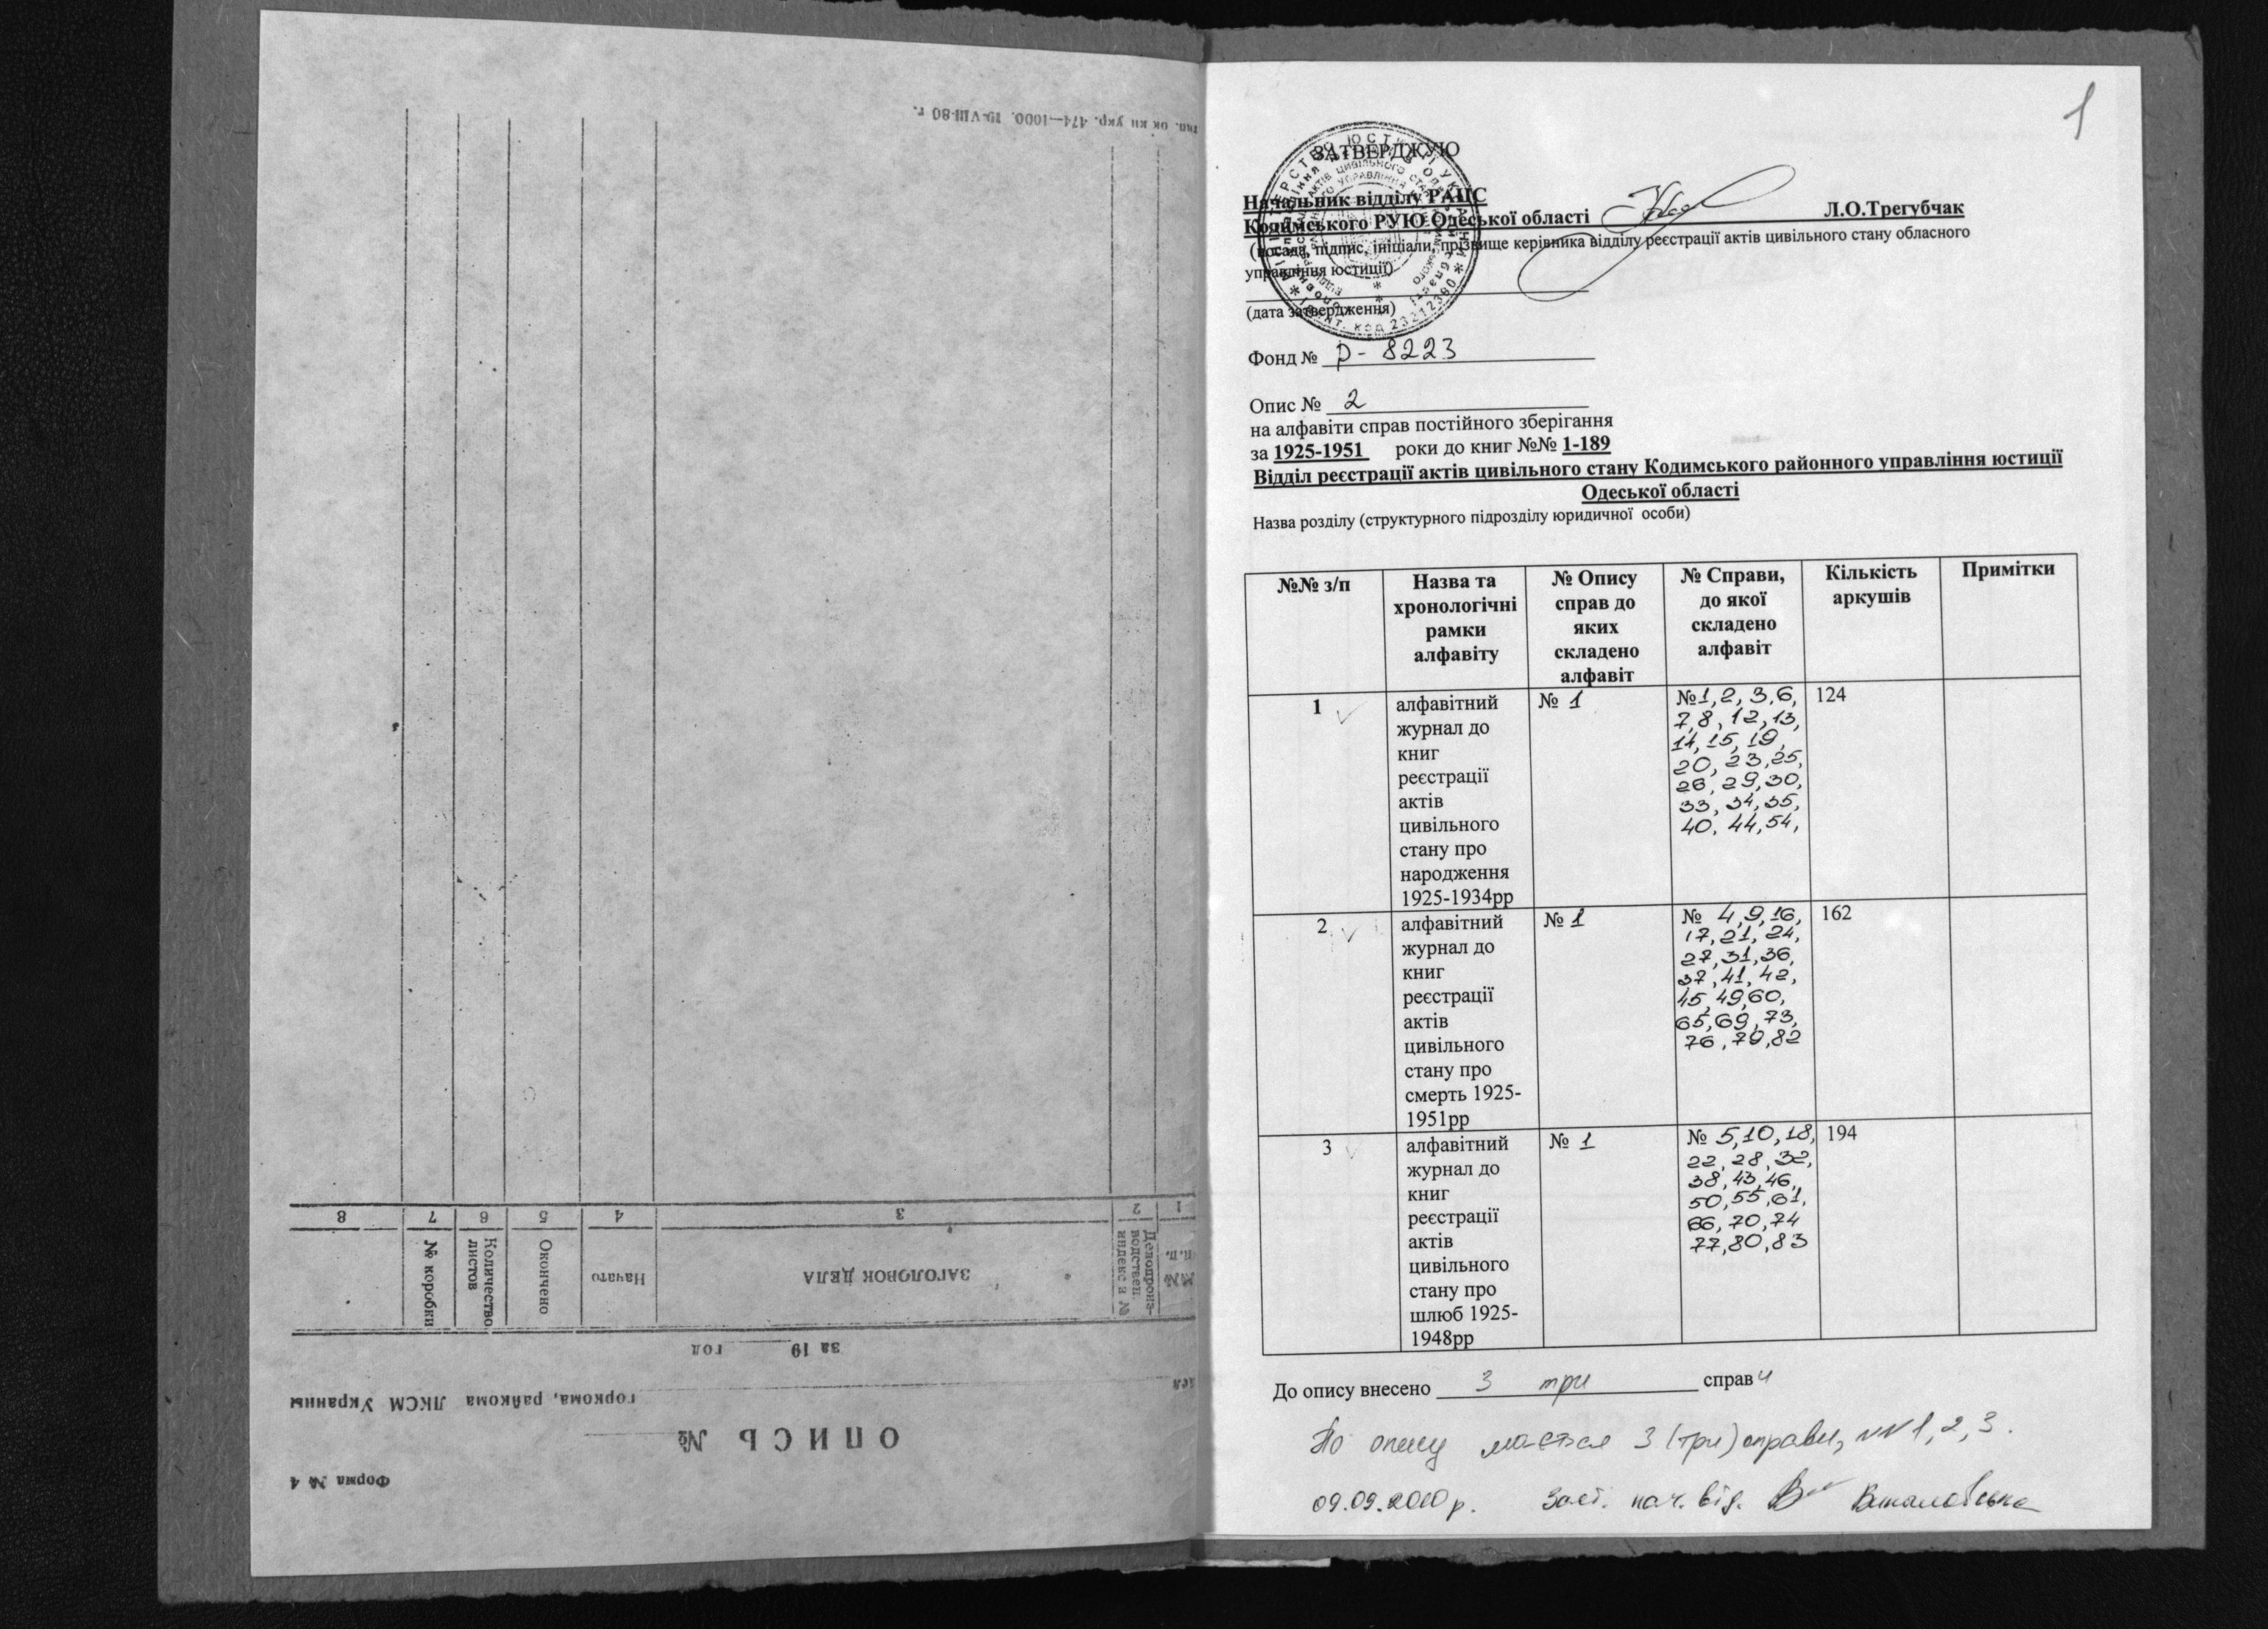 тип. ок кп укр. 474—1000. 19-VIII-80 г.
Форма № 4
ОПИСЬ №
горкома, райкома ЛКСМ Украины
за 19 год
№№ п.п.
Делопроиз-водствен. индекс и №
ЗАГОЛОВОК ДЕЛА
Начато
Окончено
Количество листов
№ коробки
1 2 3 4 5 6 7 8
1
ЗАТВЕРДЖУЮ
Начальник відділу РАЦС
Кодимського РУЮ Одеської області Л.О.Трегубчак
(посада, підпис, ініціали, прізвище керівника відділу реєстрації актів цивільного стану обласного
управління юстиції)
(дата затвердження)
Фонд № Р - 8223
Опис № 2
на алфавіти справ постійного зберігання
за 1925-1951 роки до книг №№ 1-189
Відділ реєстрації актів цивільного стану Кодимського районного управління юстиції
Одеської області
Назва розділу (структурного підрозділу юридичної особи)
№№ з/п
Назва та
хронологічні
рамки
алфавіту
№ Опису
справ до
яких
складено
алфавіт
№ Справи,
до якої
складено
алфавіт
Кількість
аркушів
Примітки
1
алфавітний
журнал до
книг
реєстрації
актів
цивільного
стану про
народження
1925-1934рр
№ 1
№1, 2, 3, 6,
7, 8, 12, 13,
14, 15, 19,
20, 23, 25,
26, 29, 30,
33, 34, 35,
40, 44, 54,
124
2
алфавітний
журнал до
книг
реєстрації
актів
цивільного
стану про
смерть 1925-
1951рр
№ 1
№ 4, 9, 16,
17, 21, 24,
27, 31, 36,
37, 41, 42,
45, 49, 60,
65, 69, 73,
76, 79, 82
162
3
алфавітний
журнал до
книг
реєстрації
актів
цивільного
стану про
шлюб 1925-
1948рр
№ 1
№ 5, 10, 18,
22, 28, 32,
38, 43, 46,
50, 55, 61,
66, 70, 74
77, 80, 83
194
До опису внесено 3 три справи
По опису мається 3 (три) справи, NN 1, 2, 3.
09.09.2010 р. Заст. нач. від.